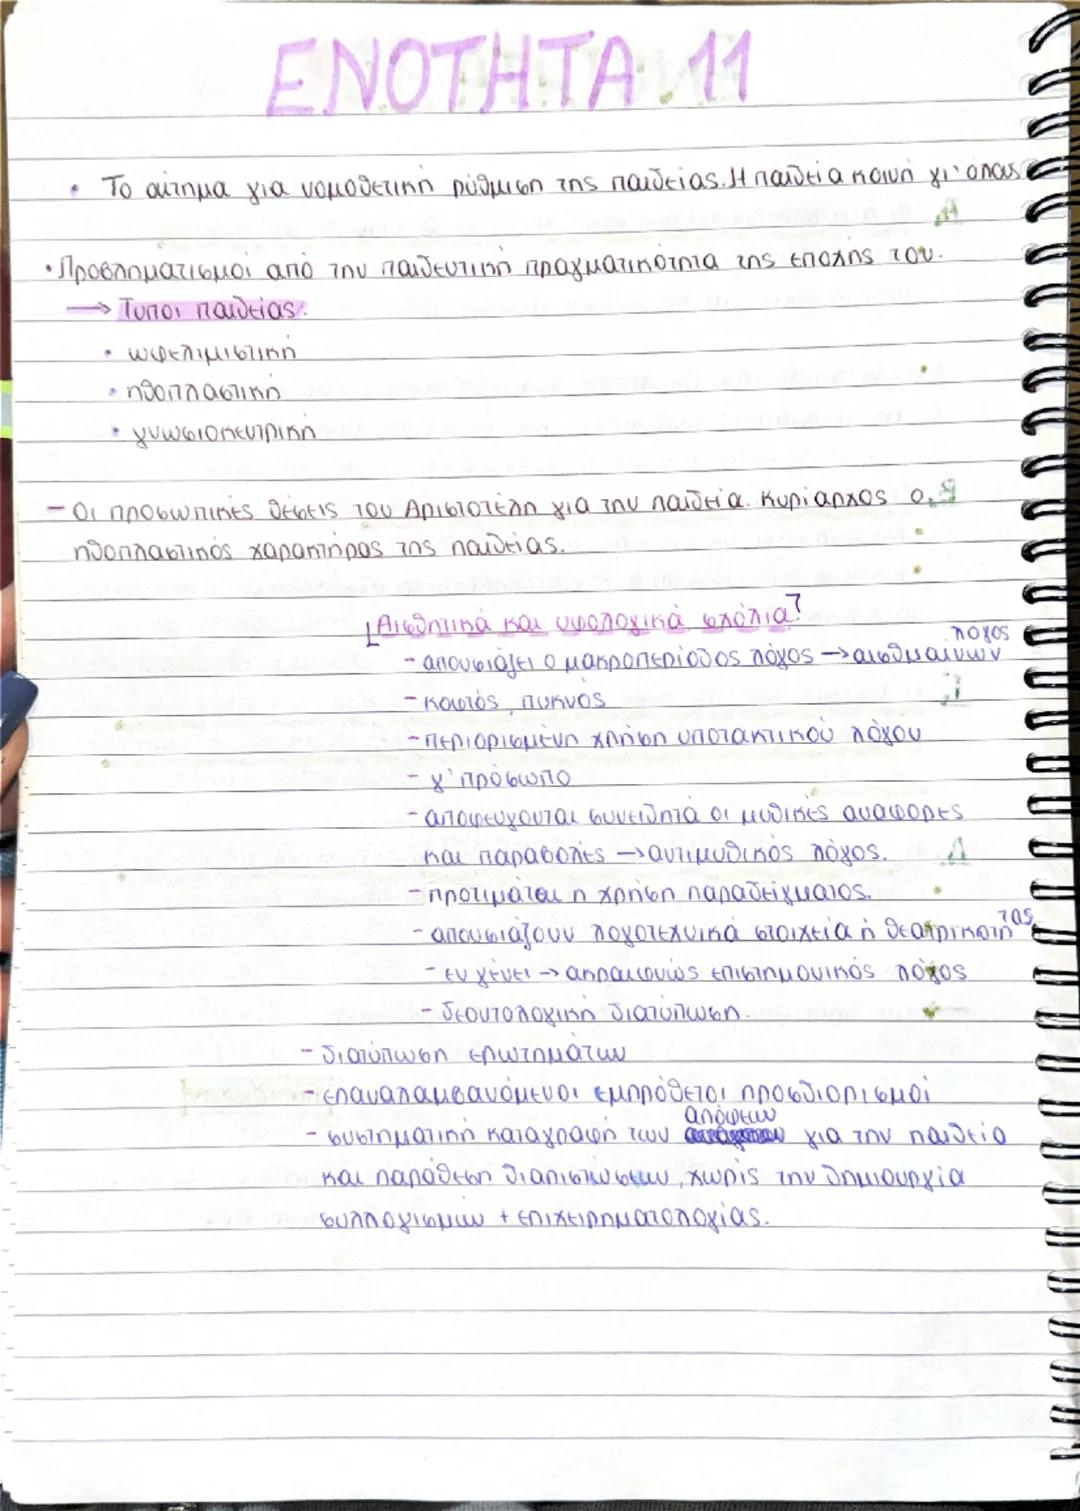 ΕΝΟΤΗΤΑ 11
• Το αίτημα για νομοθετική ρύθμιση της παιδείας. Η παιδεία κοινή γι' όλους
• Προβληματισμοί από την παιδευτική πραγματικότητα της εποχής του.
→ Τύποι παιδείας:
• ωφελιμιστική
• ηθοπλαστική
• γνωσιοκεντρική
- Οι προσωπικές θέσεις του Αριστοτέλη για την παιδεία. Κυρίαρχος ο
ηθοπλαστικός χαρακτήρας της παιδείας.
Αισθητικά και υφολογικά σχόλια
- απουσιάζει ο μακροπερίοδος λόγος → ασθμαίνων λόγος
- κοφτός, πυκνός
- περιορισμένη χρήση υποτακτικού λόγου
- γ' πρόσωπο
- αποφεύγονται συνειδητά οι μυθικές αναφορές
και παραβολές → αντιμυθικός λόγος.
- προτιμάται η χρήση παραδείγματος.
- απουσιάζουν λογοτεχνικά στοιχεία ή θεατρικότητας
- εν γένει → ακραιφνώς επιστημονικός λόγος
- δεοντολογική διατύπωση.
- διατύπωση ερωτημάτων
- επαναλαμβανόμενοι εμπρόθετοι προσδιορισμοί
- συστηματική καταγραφή των απόψεων για την παιδεία
και παράθεση διαπιστώσεων, χωρίς την δημιουργία
συλλογισμών + επιχειρηματολογίας.